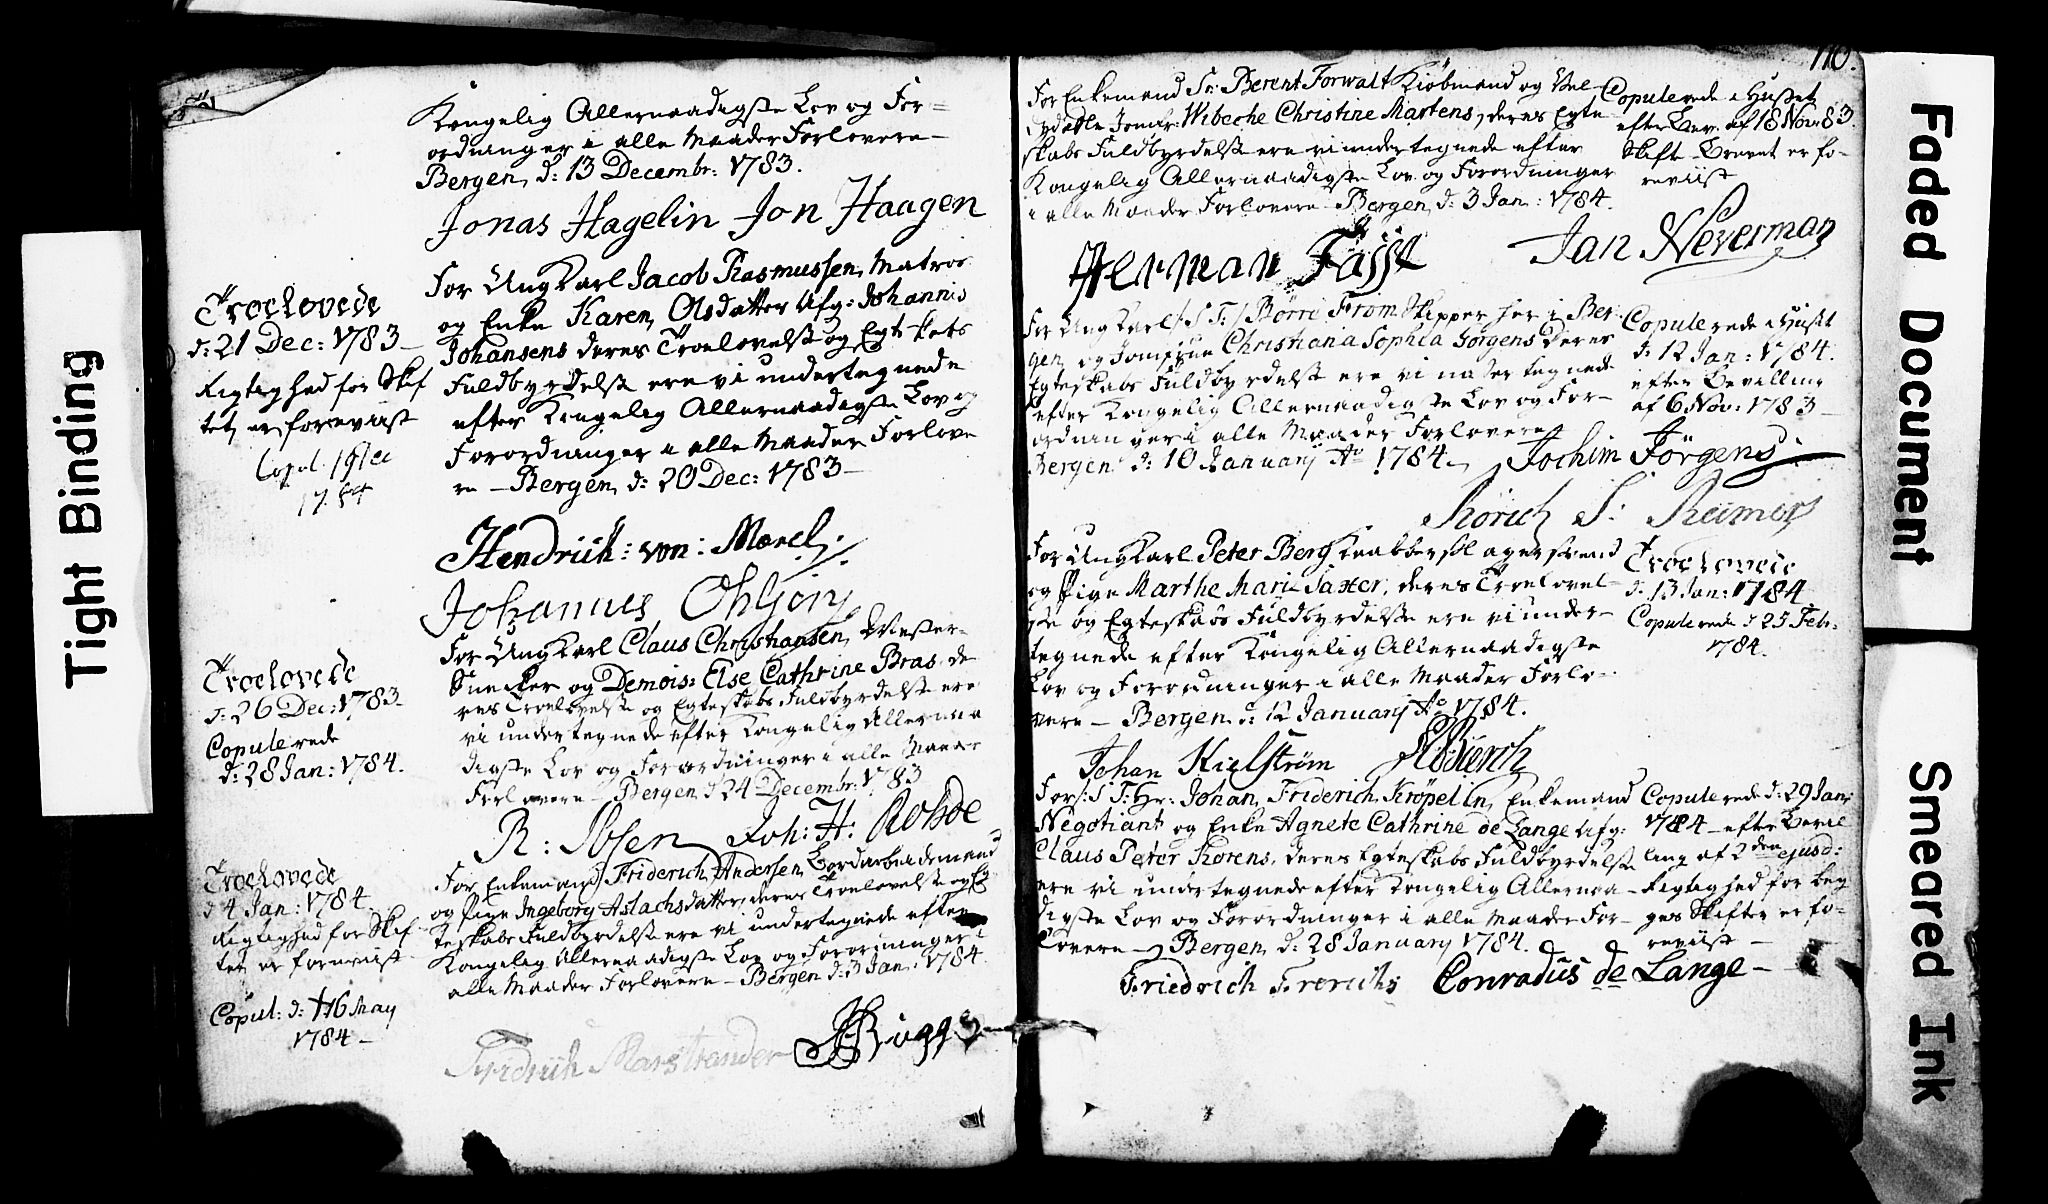 Kongelig Allernaadigste Lov og For=
ordninger i alle Maader Forlovere
Bergen, d: 13 Decembr: 1783.
Jonas Hagelin Jon Haagen
Troelovede
d: 21 Dec: 1783
Rigtighed for Skif
tet, er foreviist
Copul. 19
1784
For UngKarl Jacob Rasmussen, Matros
og Enke Karen, Olsdatter Afg: Johannis
Johansens deres Troelovelse og Egteskabs
Fuldbyrdelse ere vi undertegnede
efter Kongelig Allernaadigste Lov og
Forordninger i alle Maader Forlove
re – Bergen, d: 20 Dec: 1783 –
Hendrich: von:
Johannes Ohlson
Troelovede
d: 26 Dec: 1783
Copulerede
d: 28 Jan: 1784.
For UngKarl Claus Christiansen, Mester
Snecker og Demois: Else Cathrine Bras, de
res Troelovelse og Egteskabs Fuldbyrdelse ere
vi undertegnede efter Kongelig Allernaa
digste Lov og Forordninger i alle Maader
Forlovere – Bergen d 24 Decembr: 1783
R: Ibsen Joh: H: Rohde
Troelovede
d 4 Jan: 1784.
Rigtighed for Skif
tet er foreviist
Copul: d: 16 May
1784 –
For Enkemand Friderich Andersen,
og Pige Ingeborg Aslachsdatter, deres Troelovelse og Eg
teskabs Fuldbyrdelse ere vi undertegnede efter
Kongelig Allernaadigste Lov og Forordninger i
alle Maader Forlovere – Bergen d: 3 Jan: 1784.
Fredrich Marstrander
110.
For Enkemand Sr: Berent Forwalt Kiöbmand og Vel
ædle Jomfr: Wibeche Christine Martens, deres Egte
skabs Fuldbyrdelse ere vi undertegnede efter
Kongelig Allernaadigste Lov og Forordninger
i alle Maader Forlovere Bergen, d: 3 Jan: 1784.
Copulerede i Huset
efter Bev. af 18 Nov: 83
Skifte Brevet er fo-
reviist
Herman Jan Neverman
For UngKarl /: S T:/ Börre From Skipper her i Ber
gen, og Jomfrue Christiana Sophia Jörgens deres
Egteskabs Fuldbyrdelse ere vi undertegnede
efter Kongelig Allernaadigste Lov og For-
ordninger i alle Maader Forlovere
Bergen d: 10 Januarij Ao 1784
Copulerede i Huset
d: 12 Jan: 1784.
efter Bevilling
af 6 Nov: 1783
Jochim Jörgens
Reimers
For UngKarl Peter Berg
og Pige Marthe Marie, deres Troelovel-
se og Egteskabs Fuldbyrdelse ere vi under-
tegnede efter Kongelig Allernaadigste
Lov og Forordninger i alle Maader Forlo-
vere – Bergen d: 12 Januarij Ao 1784.
Troelovede
d: 13 Jan: 1784
Copulerede d 25 Feb:
1784.
Johan Kielström
For /: S T: Hr: Johan, Friderich, Kröpelin, Enkemand
Negotiant og Enke Agnete Cathrine de Lange Afg:
Claus Peter Thorens, deres Egteskabs Fuldbyrdelse
ere vi undertegnede efter Kongelig Allernaa-
digste Lov og Forordninger i alle Maader For-
lovere – Bergen, d: 28 January 1784.
Copulerede d: 29 Jan:
1784 – efter Bevil
ling af 2den ejusd:
Rigtighed for beg
ges Skifter er fo-
reviist –
Friedrich Frerichs Conradus de Lange –
Tight Binding
Faded Document
Smeared Ink